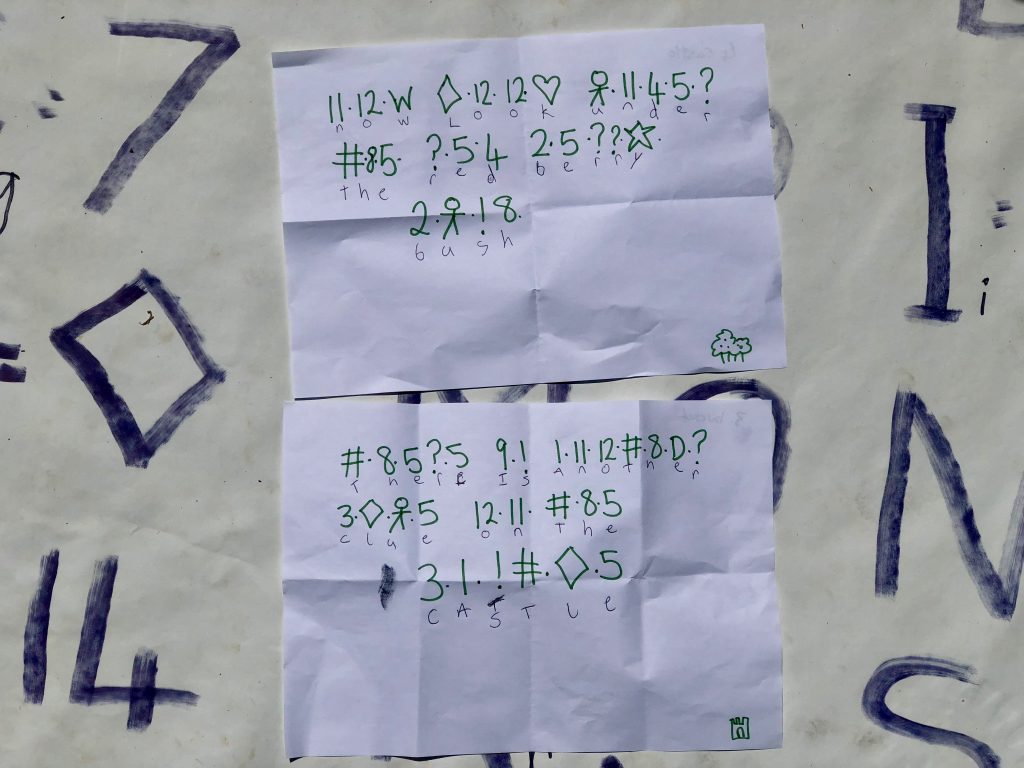 7
14
I
i
N
S
11·12·W ◇·12·12♡ 웃·11·4·5·?
now Look under
#·85 ?·5·4 2·5·??☆·
the red berry
2·웃·!8·
bush
#·85?·5 9·! 1·11·12·#·8·D·?
There Is AnoTher
3·◇·웃·5 12·11· #·8·5
clue on The
3·1·!#·◇·5
CASTLe